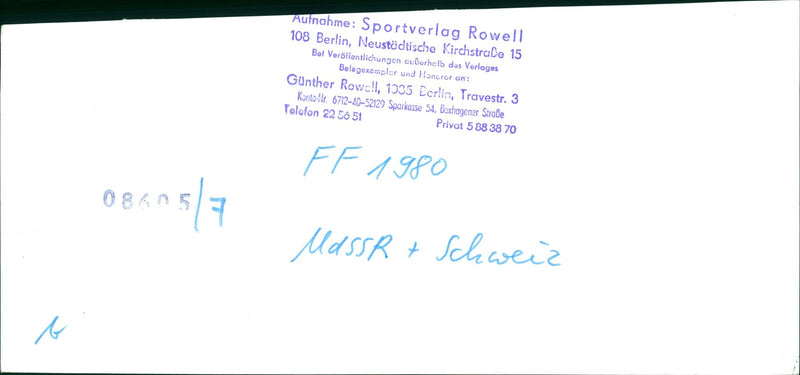 Aufnahme: Sportverlag Rowell
108 Berlin, Neustädtische Kirchstraße 15
Bei Veröffentlichungen außerhalb des Verlages
Belegexemplar und Honorar an:
Günther Rowell, 1035 Berlin, Travestr. 3
Konto-Nr. 6712-40-52129 Sparkasse 54, Boxhagener Straße
Telefon 22 56 51 Privat 5 88 38 70
FF 1980
/7
UdSSR + Schweiz